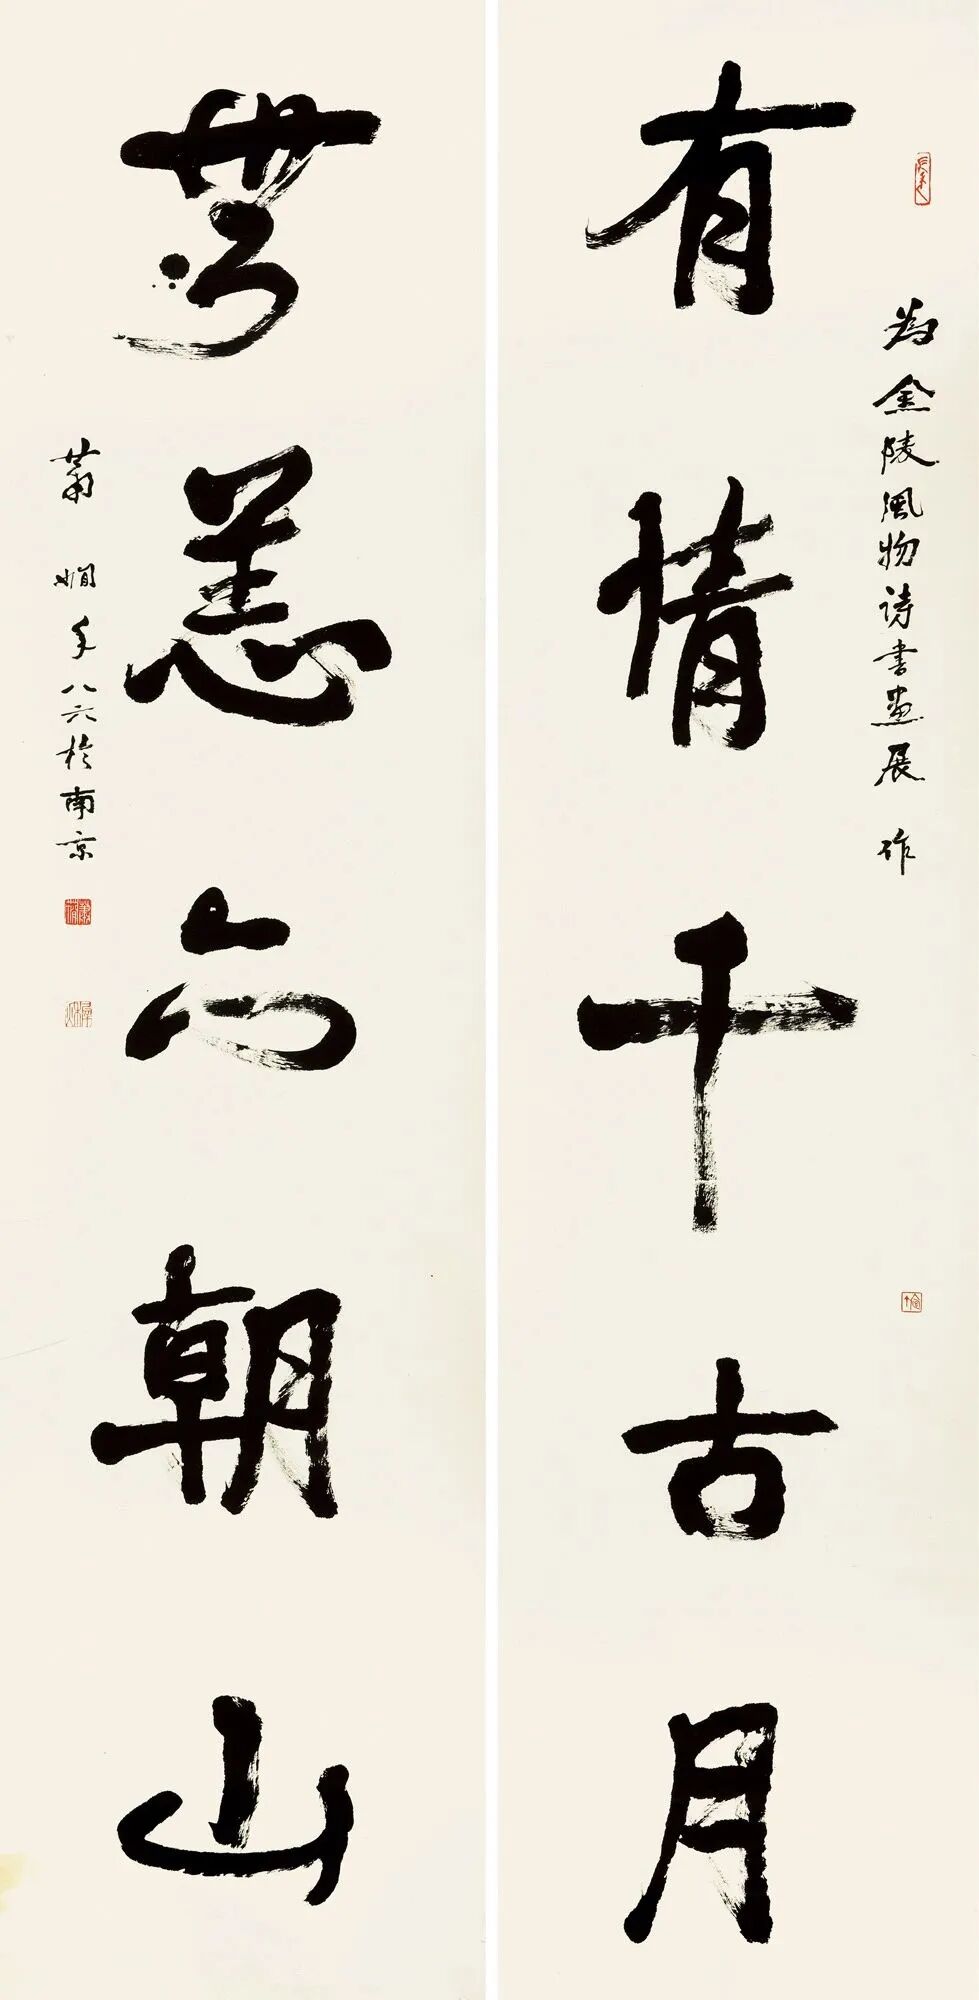 為金陵風物诗書畫展作
有情千古月
無恙六朝山
蕭嫻年八六於南京